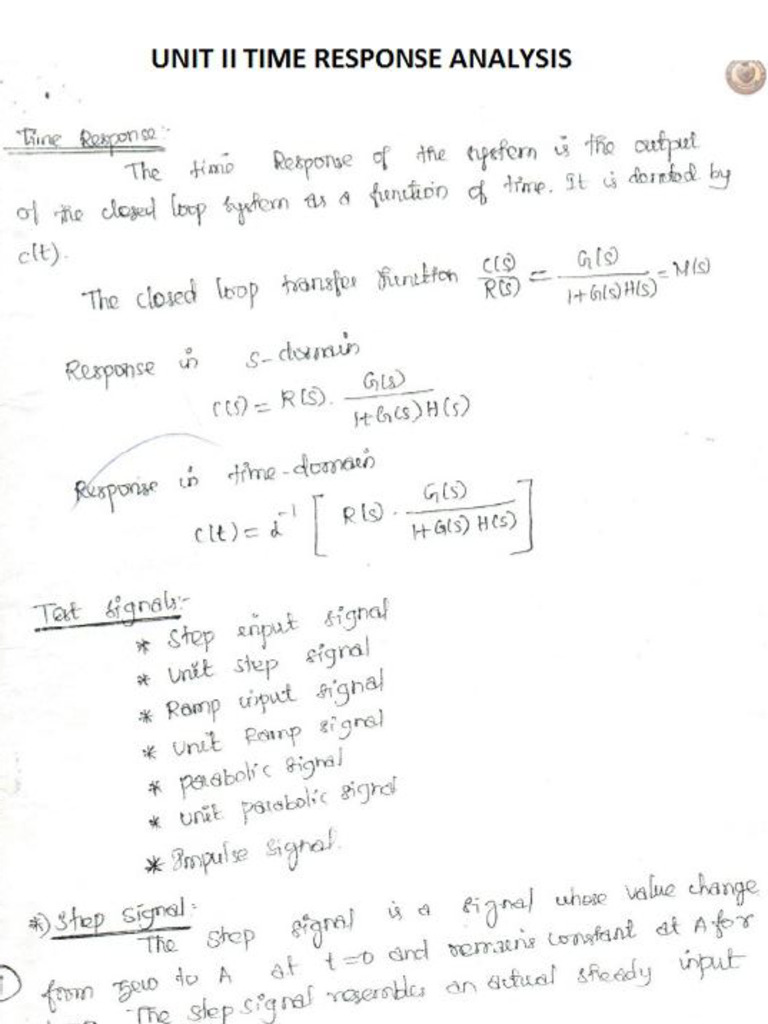 UNIT II TIME RESPONSE ANALYSIS
Time Response:-
The time Response of the system is the output
of the closed loop system as a function of time. It is denoted by
c(t).
The closed loop transfer function C(s)/R(s) = G(s)/1+G(s)H(s) = M(s)
Response in s-domain
C(s) = R(s). G(s)/1+G(s)H(s)
Response in time-domain
c(t) = L⁻¹ [ R(s) . G(s)/1+G(s)H(s) ]
Test signals:-
* Step input signal
* Unit step signal
* Ramp input signal
* Unit Ramp signal
* parabolic signal
* unit parabolic signal
* Impulse signal.
*) Step Signal:-
The step signal is a signal whose value change
from zero to A at t=0 and remains constant at A for
The step signal resembles an actual steady input